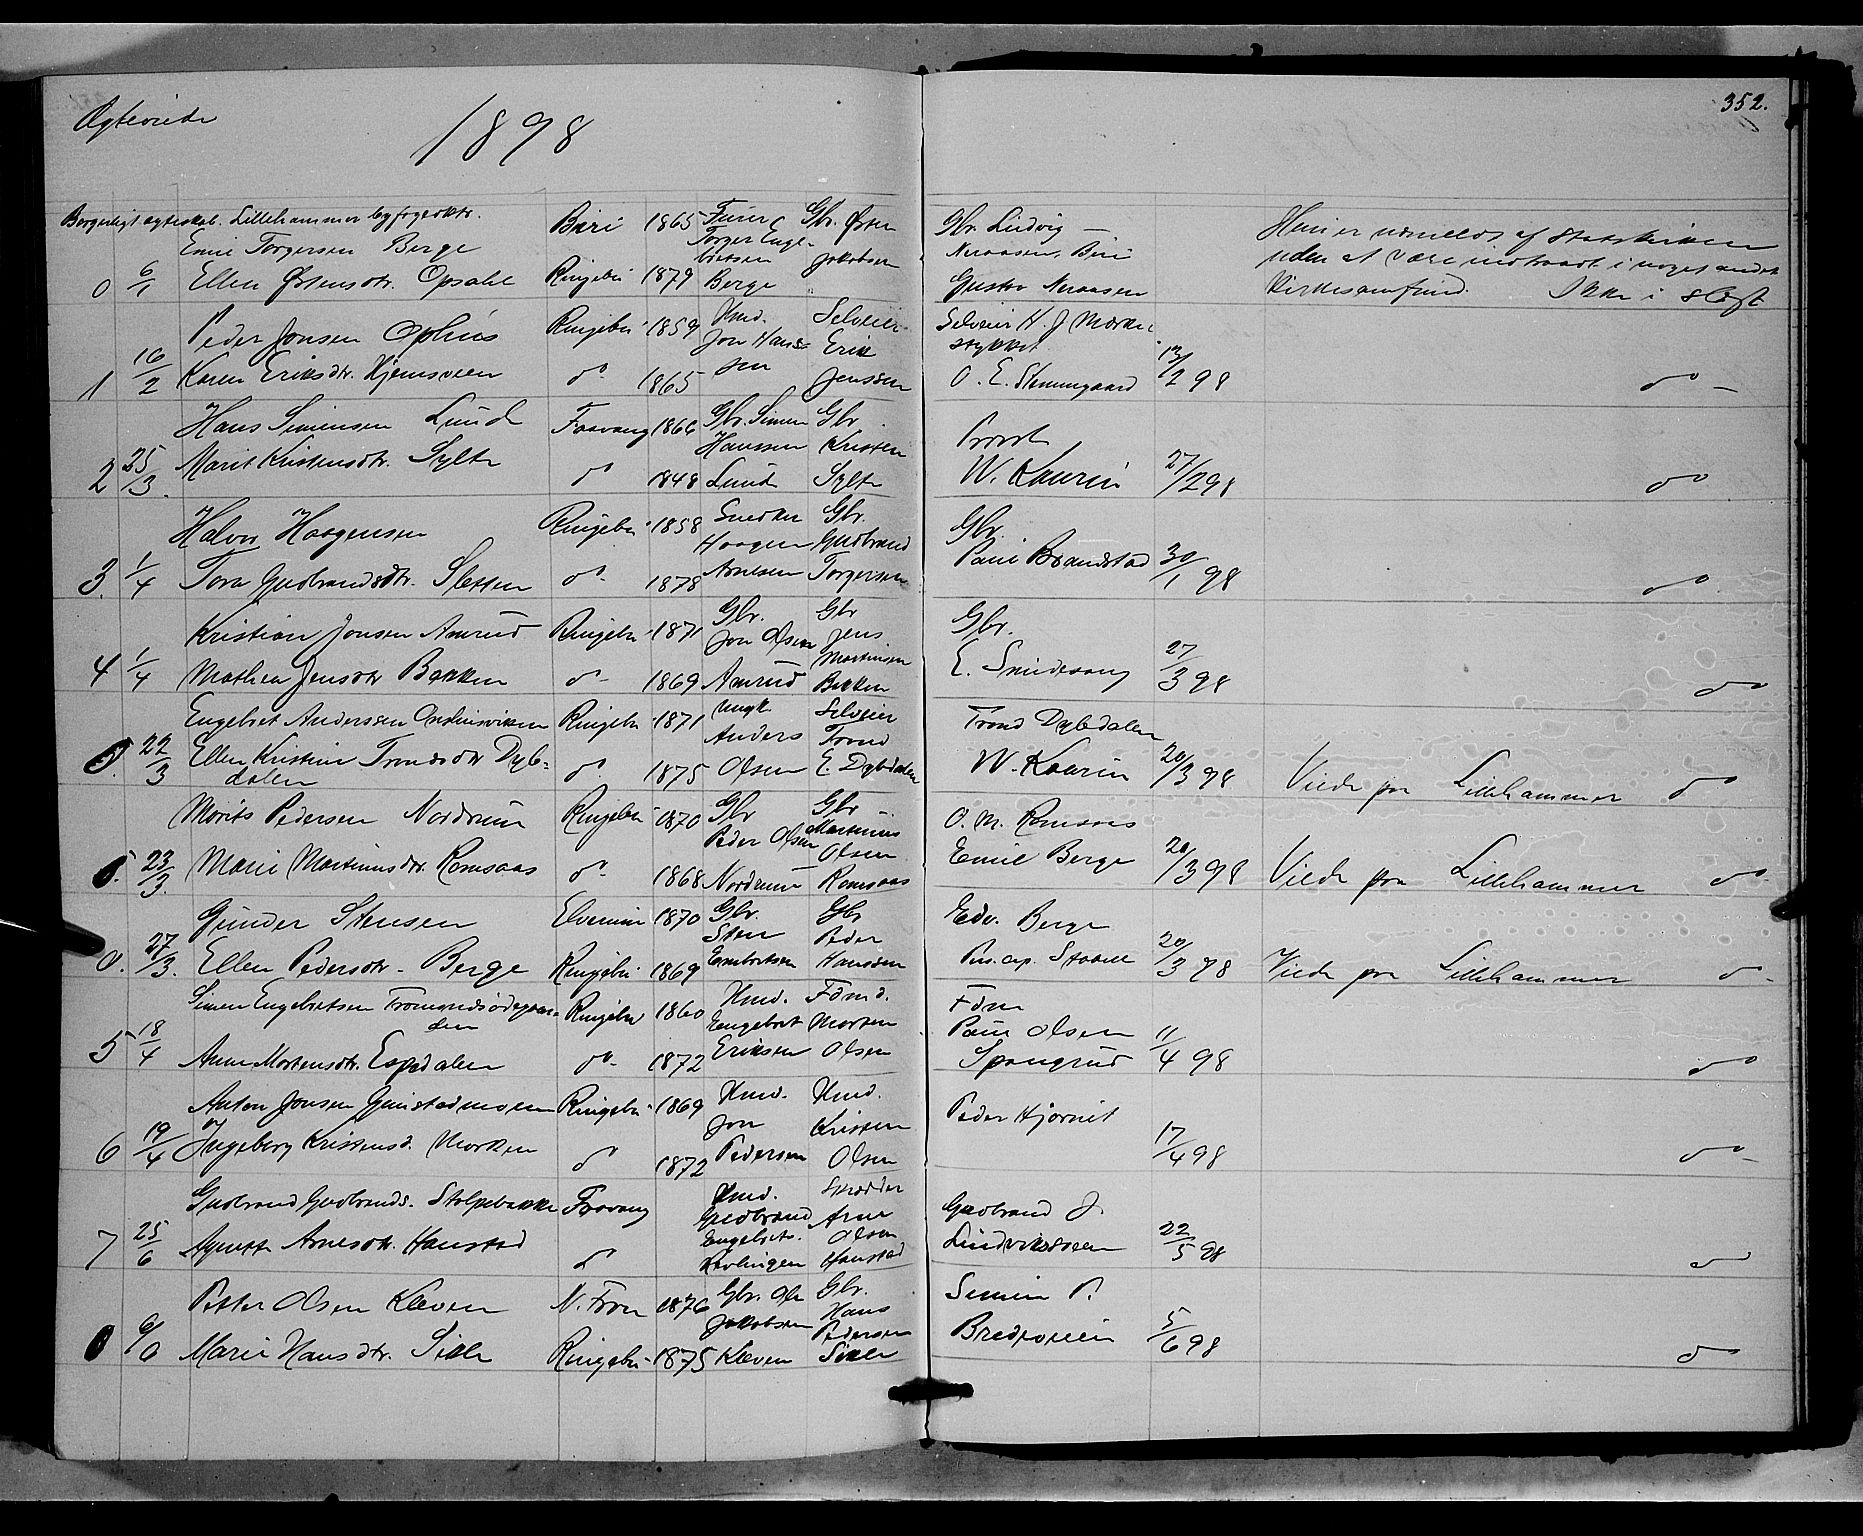 Ægteviede
1898
352.
Borgerligt ægteskab. Lillehammer byfogedktr.
Emil Torgersen Berge Biri 1865 Torger Enge- Gbr. Østen Gbr. Ludvig
bretsen Jakobsen Neraasen, Biri
0 6/1 Ellen Østensdtr. Opsahl Ringebu 1879 Berge Gustav Neraasen
Han er udmeldt af Statskirken
uden at være indtraadt i noget andet
Kirkesamfund. Ikke i slægt
Peder Jonsen Ophus Ringebu 1859 Hmd. Jon Hans- sen Selveier Erik Jenssen
1 16/2 Karen Eriksdtr. Hjemsveen do 1865
Selveier H. J. Mærke-
stykket
O. E. Stemmgaard 13/2 98 do
Hans Simensen Lund Faavang 1866 Gbr. Simen Hanssen Lund Gbr. Kristen Sylte
2 25/3. Marit Kristensdtr. Sylte do 1848
Provst
W. Kaurin 27/2 98 do
Halvor Haagensen Ringebu 1858 Snedker Haagen Arnesen Gbr. Gudbrand Torgersen
3. 1/4 Tora Gudbrandsdtr. Sletten do 1878
Gbr.
Paul Brandstad 30/1 98 do
Kristian Jonsen Amrud Ringebu 1871 Gbr. Jon Olsen Amrud Gbr Jens Martinsen Bakken
4 1/4 Mathea Jensdtr Bakken do 1869
Gbr.
E. Smidesang 27/3 98 do
Engebret Anderssen Ringebu 1871 Anders Olsen Selveier Trond E. Dybdalen
0. 22/3 Ellen Kristine Trondsdtr Dyb-
dalen do 1875
Trond Dybdalen
W. Kaurin 20/3 98 Viede paa Lillehammer do
Morits Pedersen Nordrum Ringebu 1870 Gbr Peder Olsen Nordrum Gbr Martinus Olsen Romsaas
0. 23/3. Marie Martinusdtr. Romsaas do 1868
O. M. Romsaas
Emil Berge 20/3 98 Viede paa Lillehammer do
Gunder Stensen Elverum 1870 Gbr. Sten Embretsen Gbr Peder Hanssen
0. 27/3. Ellen Pedersdtr. Berge Ringebu 1869
Edv. Berge
Pers. cap. 20/3 98 Viede paa Lillehammer do
Simen Engebretsen Ringebu 1860 Hmd. Engebret Eriksen Fdmd. Morten Olsen
5 18/4 Anne Mortensdtr. Espedalen do 1872
Fdm
Paul Olsen
Spangrud 11/4 98 do
Anton Jonsen Gunstadmoen Ringebu 1869 Hmd. Jon Pedersen Hmd. Kristen Olsen
6 19/4 Ingeborg Kristensd. Morken do 1872
Peder Hjornit
17/4 98 do
Gudbrand Gudbrands. Stolpebakke Faavang Hmd. Gudbrand Engebrets. Skrædder Arne Olsen Hanstad
7 25/6 Agnethe Arnesdtr. Hanstad do
Gudbrand J.
22/5 98 do
Petter Olsen Kleven N. Fron 1876 Gbr. Ole Jakobsen Kleven Gbr. Hans Pedersen
0 6/6 Marie Hansdtr. Ringebu 1875
Simen P.
5/6 98 do